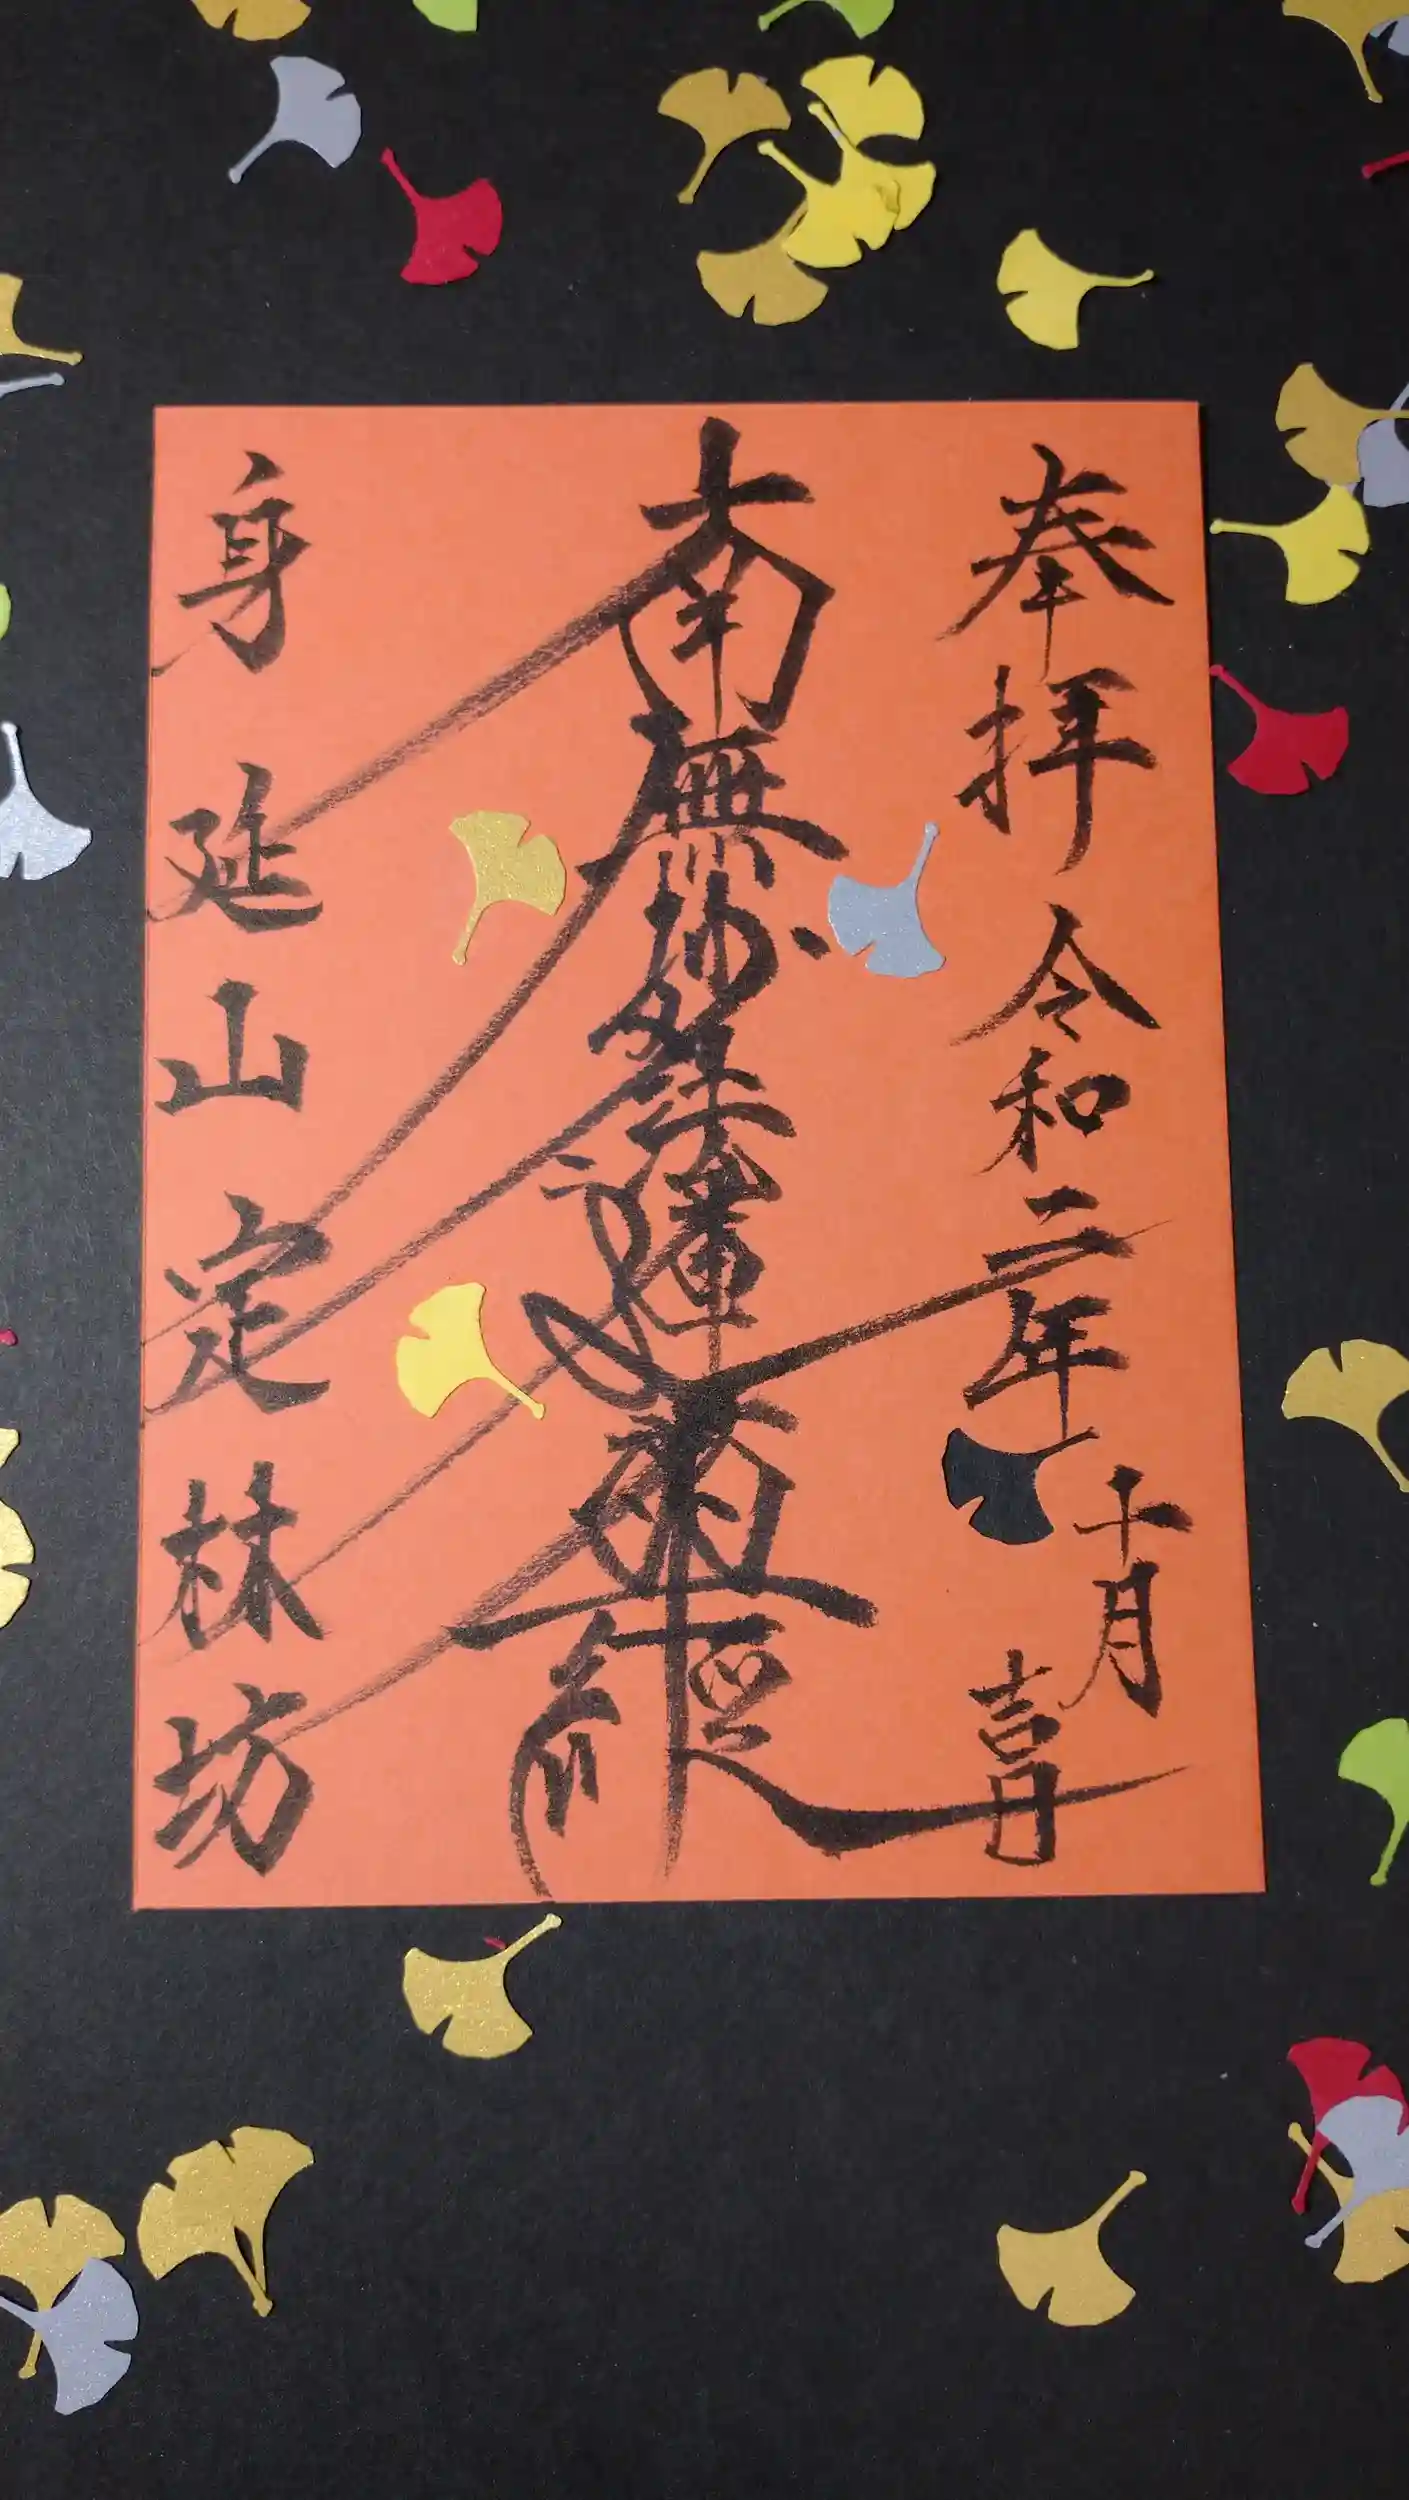 奉拝 令和二年 十月 吉日
南無妙法蓮華經
身延山定林坊